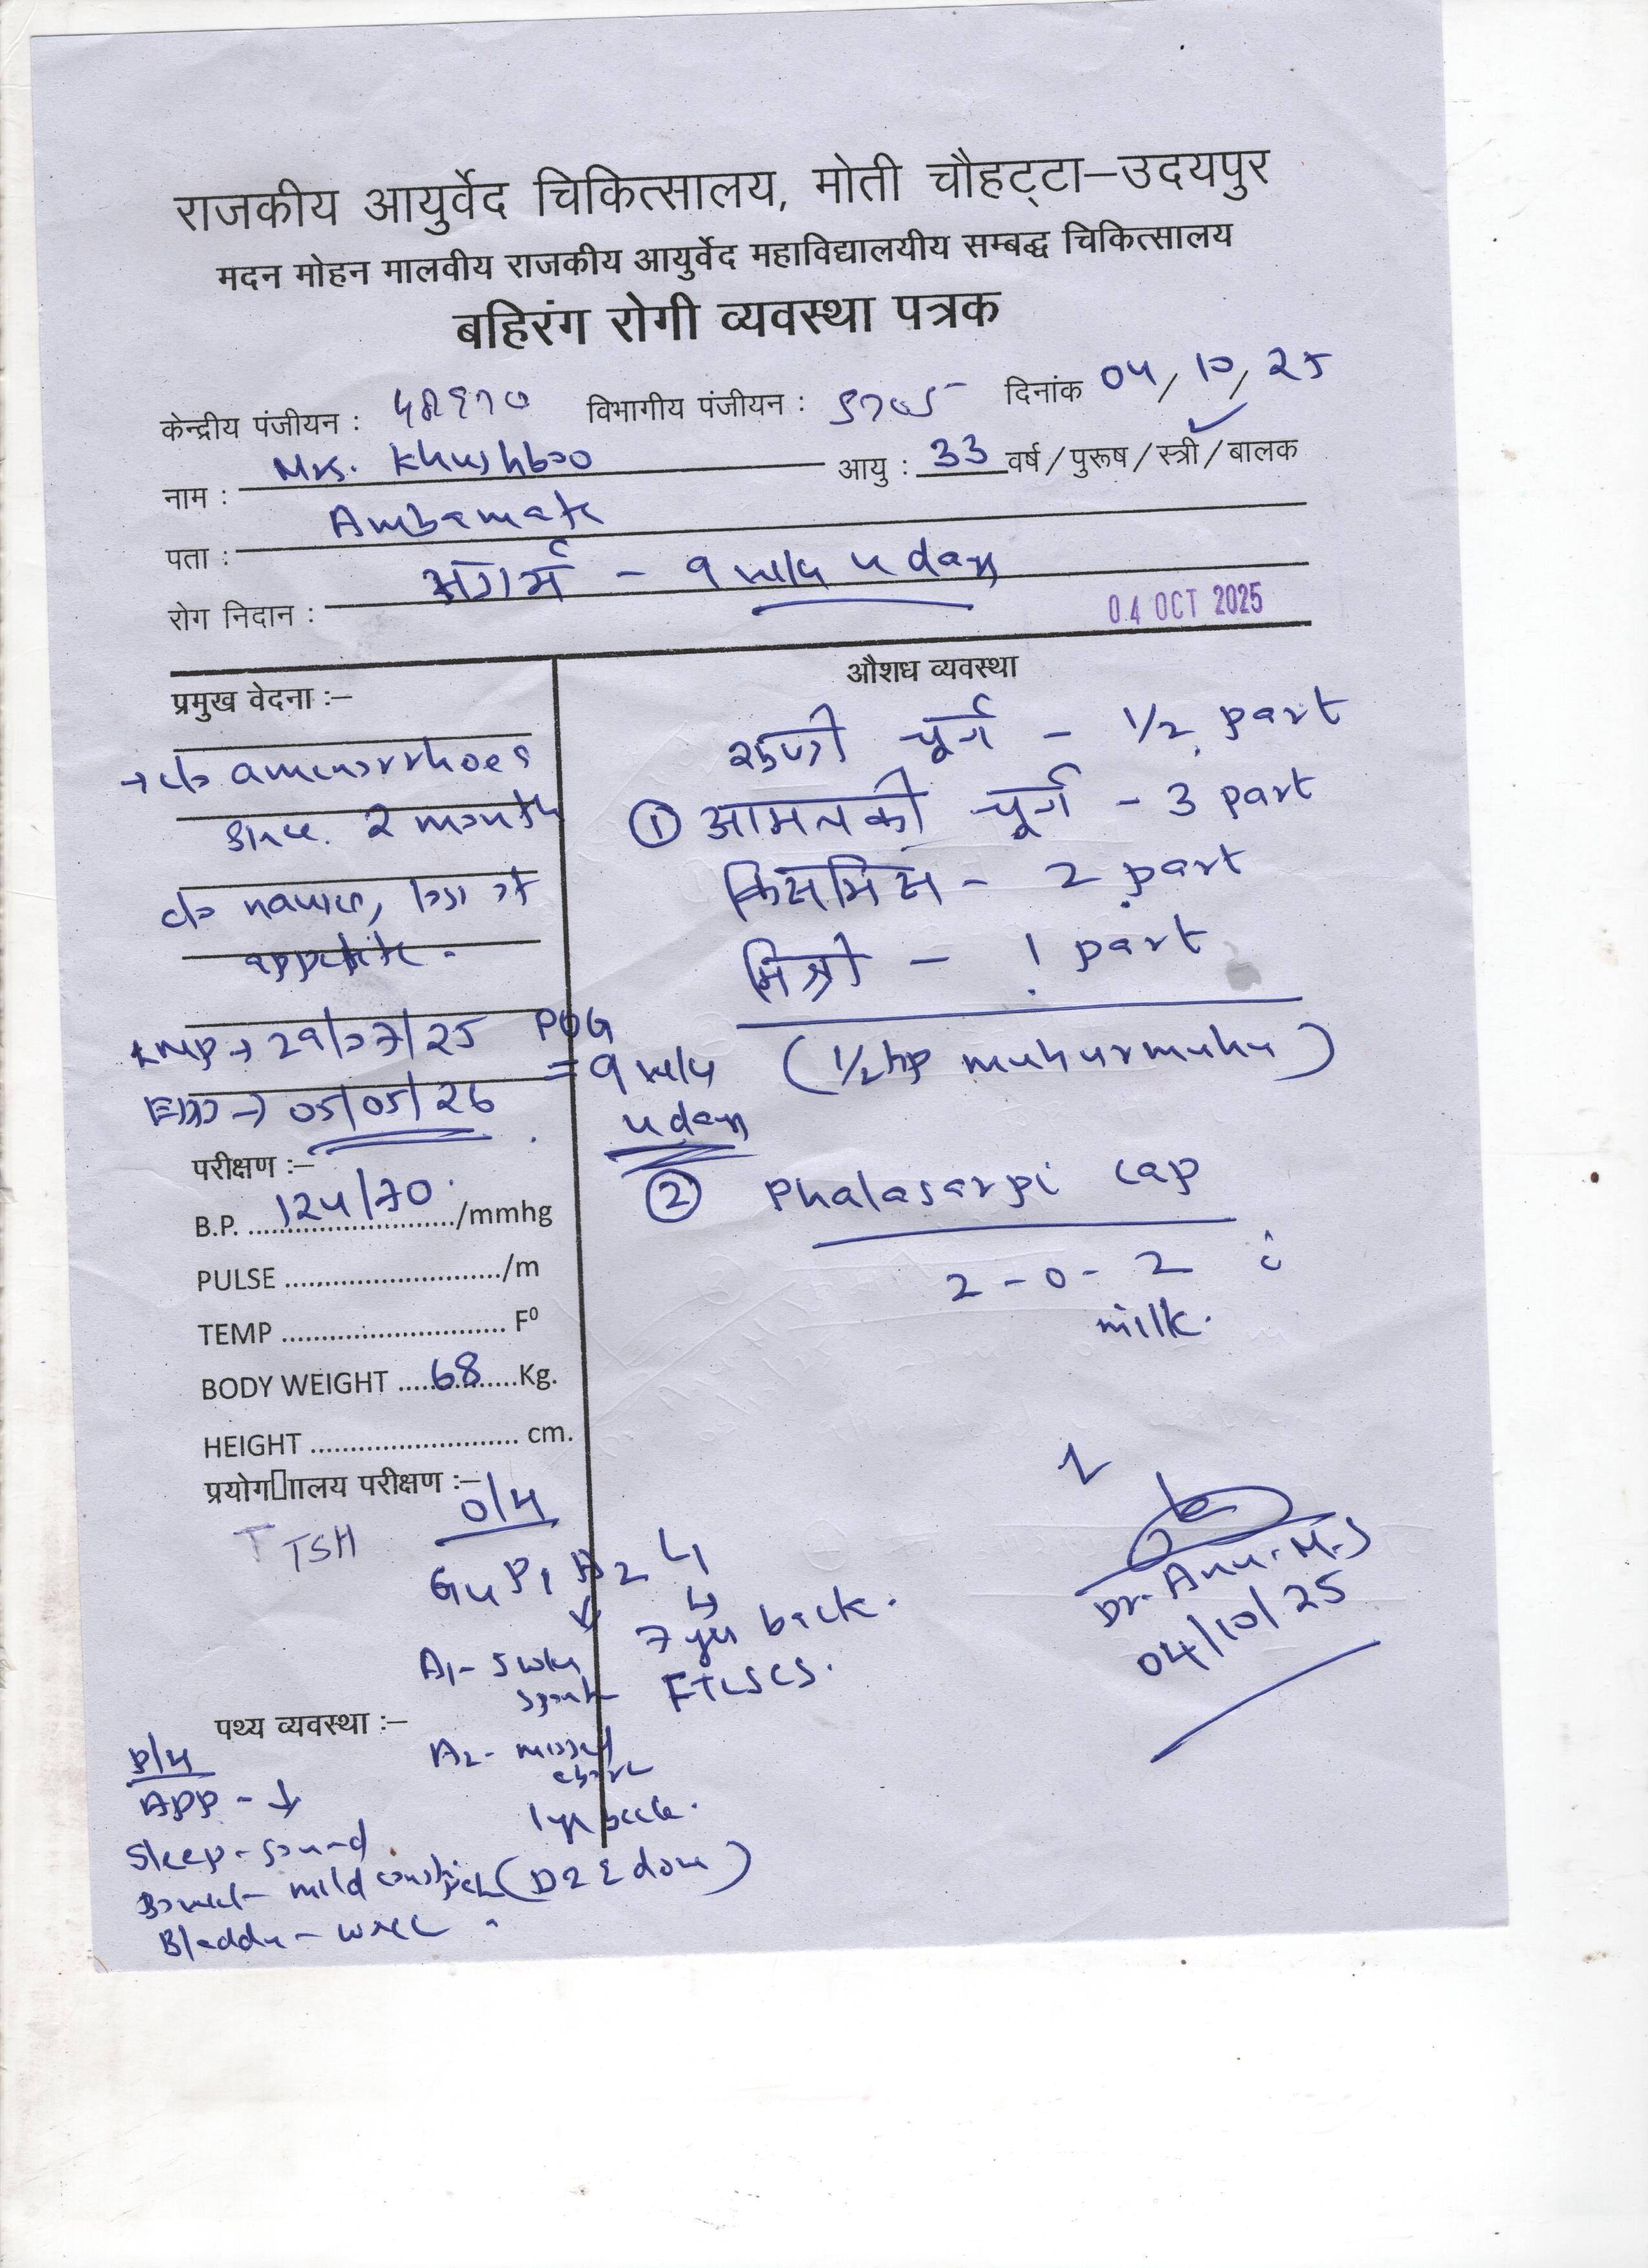 राजकीय आयुर्वेद चिकित्सालय, मोती चौहट्टा–उदयपुर
मदन मोहन मालवीय राजकीय आयुर्वेद महाविद्यालयीय सम्बद्ध चिकित्सालय
बहिरंग रोगी व्यवस्था पत्रक
केन्द्रीय पंजीयन : विभागीय पंजीयन : दिनांक 04/10/25
नाम : Mrs. Khushboo आयु : 33 वर्ष/पुरूष/स्त्री/बालक
पता : Ambamata
रोग निदान : सगर्भा - 9 wks 4 days
04 OCT 2025
प्रमुख वेदना :–
→ c/o amenorrhoea
since 2 months
c/o nausea, loss of
appetite.
LMP → 29/07/25 POG
= 9 wks
4 days
EDD → 05/05/26
परीक्षण :–
B.P. 124/70 /mmhg
PULSE /m
TEMP F⁰
BODY WEIGHT 68 Kg.
HEIGHT cm.
प्रयोगालय परीक्षण :–
TSH
O/H
G4 P1 A2 L1
A1 - 5 wks
A2 - missed
1 yr back.
(D & E done)
7 yrs back.
FTLSCS.
पथ्य व्यवस्था :–
P/H
APP - ↓
Sleep - sound
Bowel - mild
Bladder -
औशध व्यवस्था
शुण्ठी चूर्ण - 1/2 part
① आमलकी चूर्ण - 3 part
किसमिस - 2 part
मिश्री - 1 part
(1/2 tsp muhurmuhu)
② Phalasarpi cap
2 - 0 - 2 c̄
milk.
Dr. Anu. M.S
04/10/25